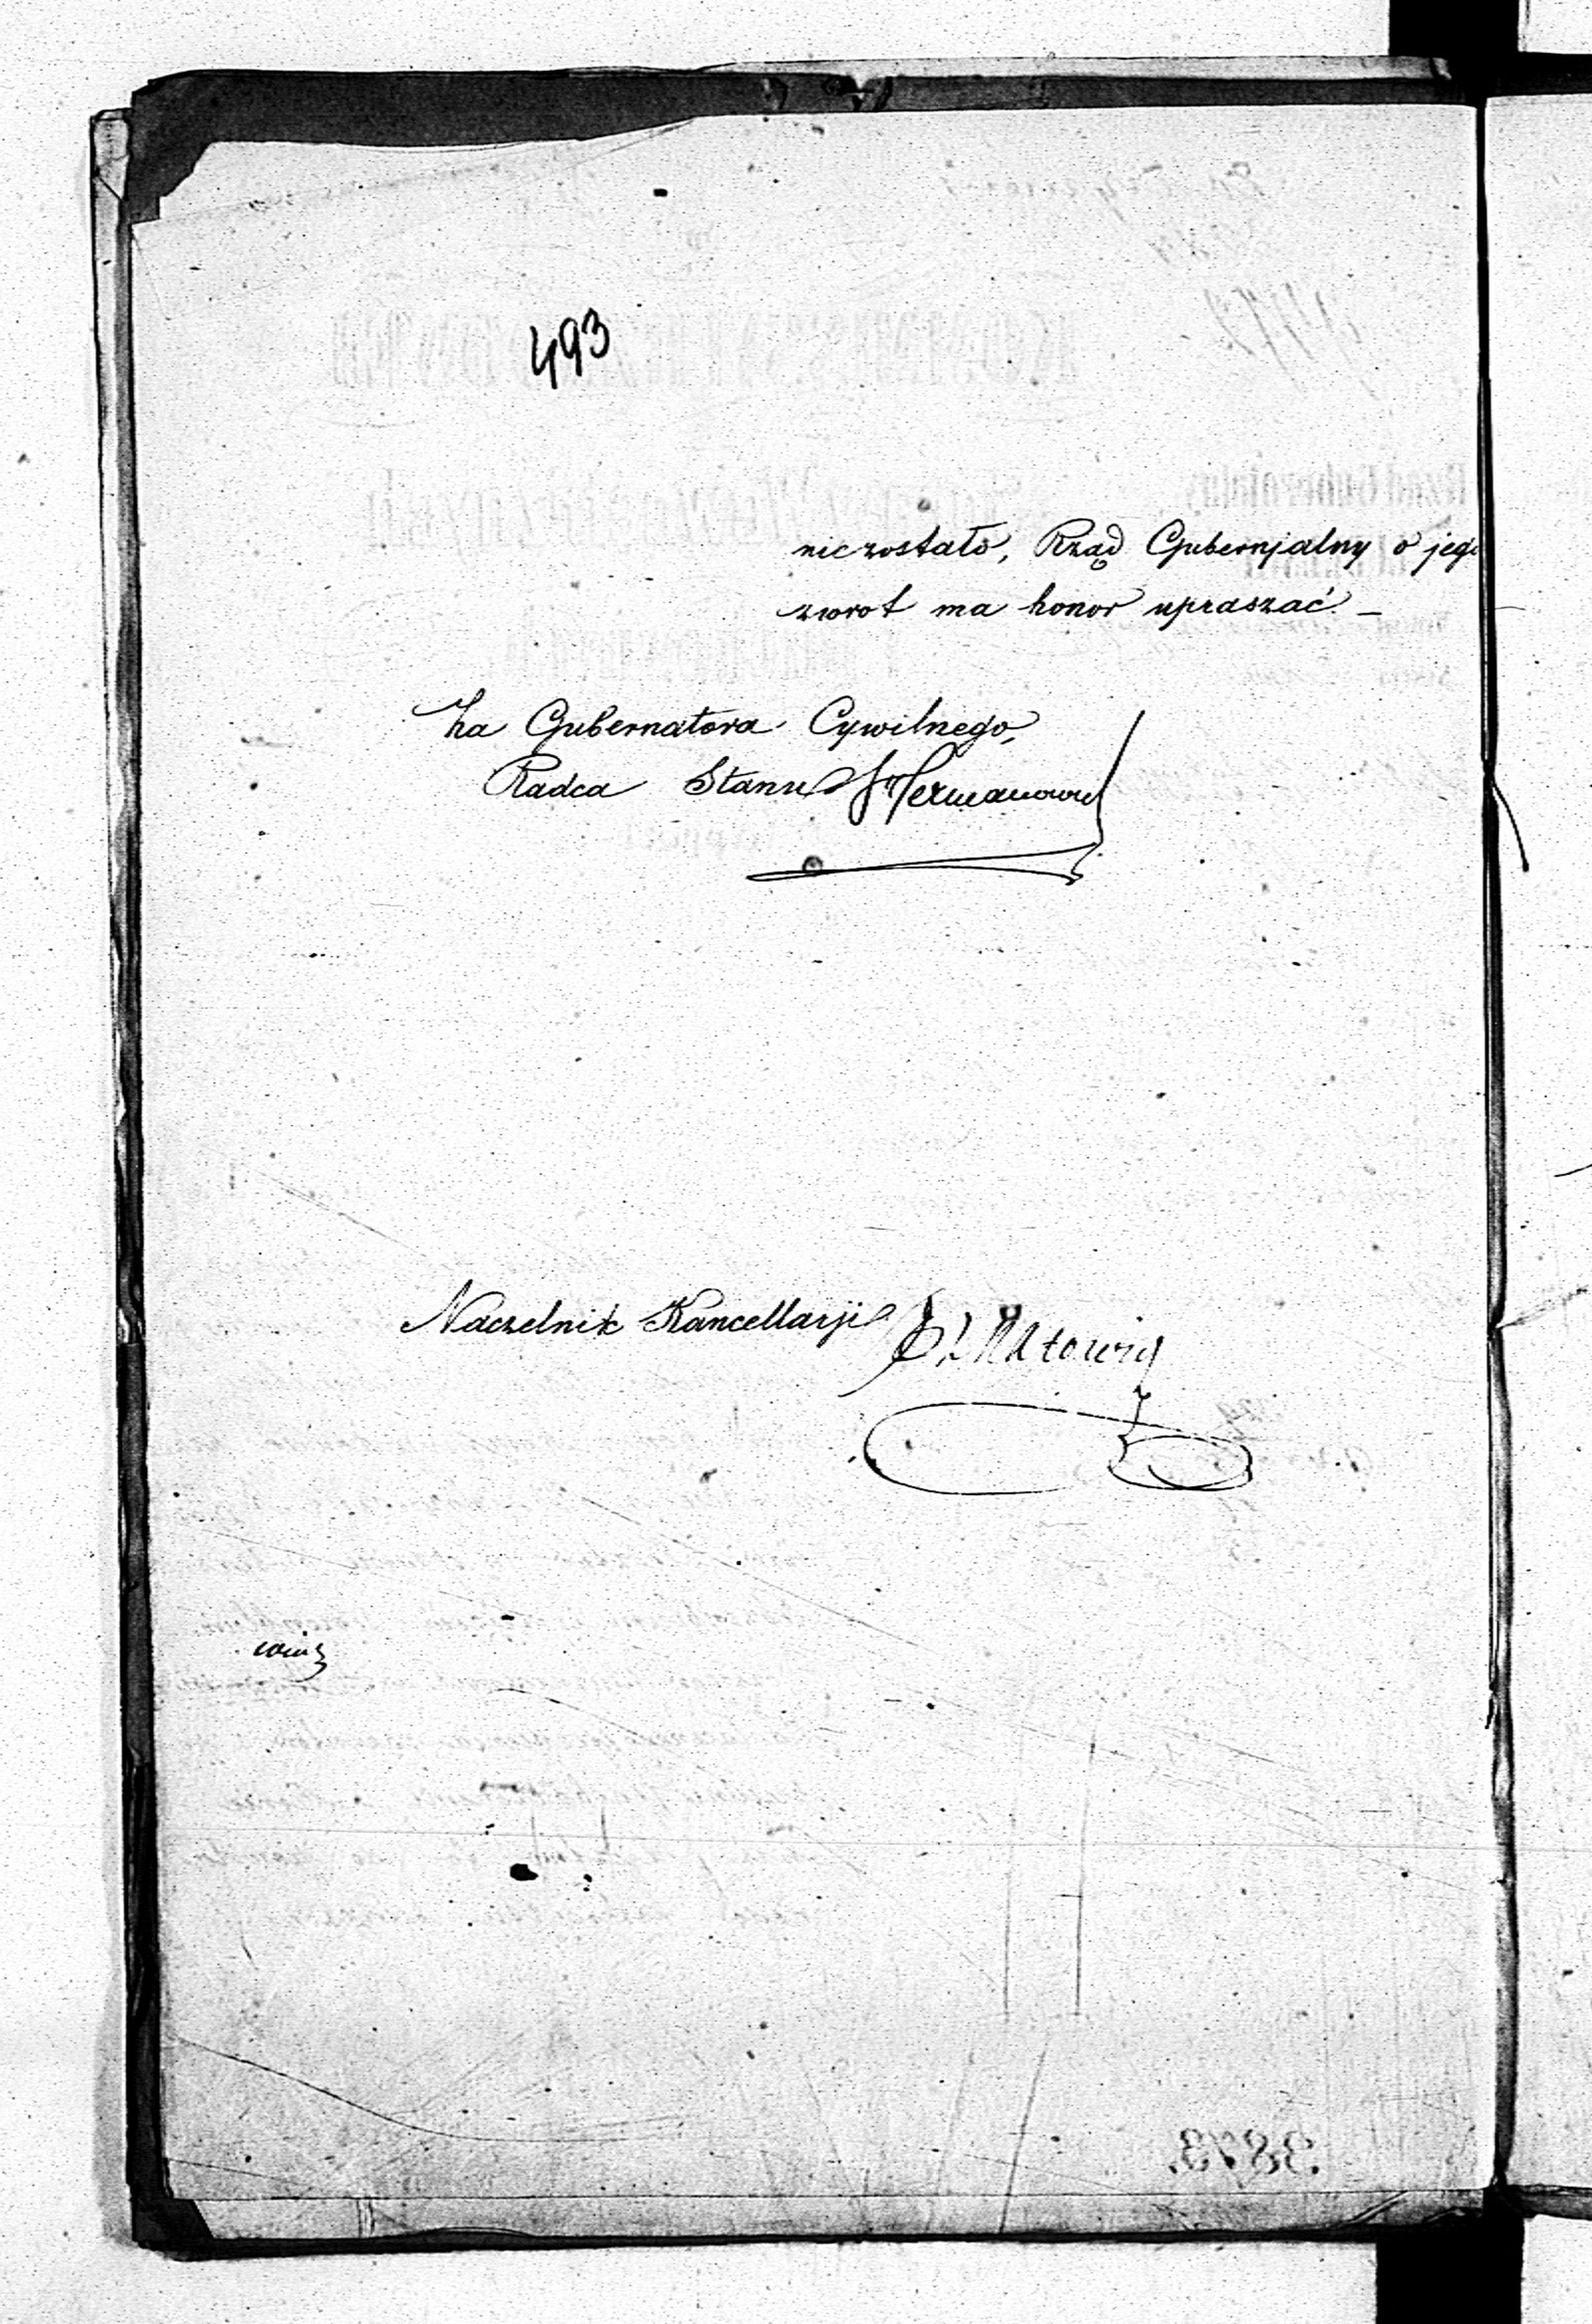 493
nie zostało, Rząd Gubernjalny o jego
zwrot ma honor upraszać. –
Za Gubernatora Cywilnego,
Radca Stanu Hermanowi
Naczelnik Kancellarji
3873.